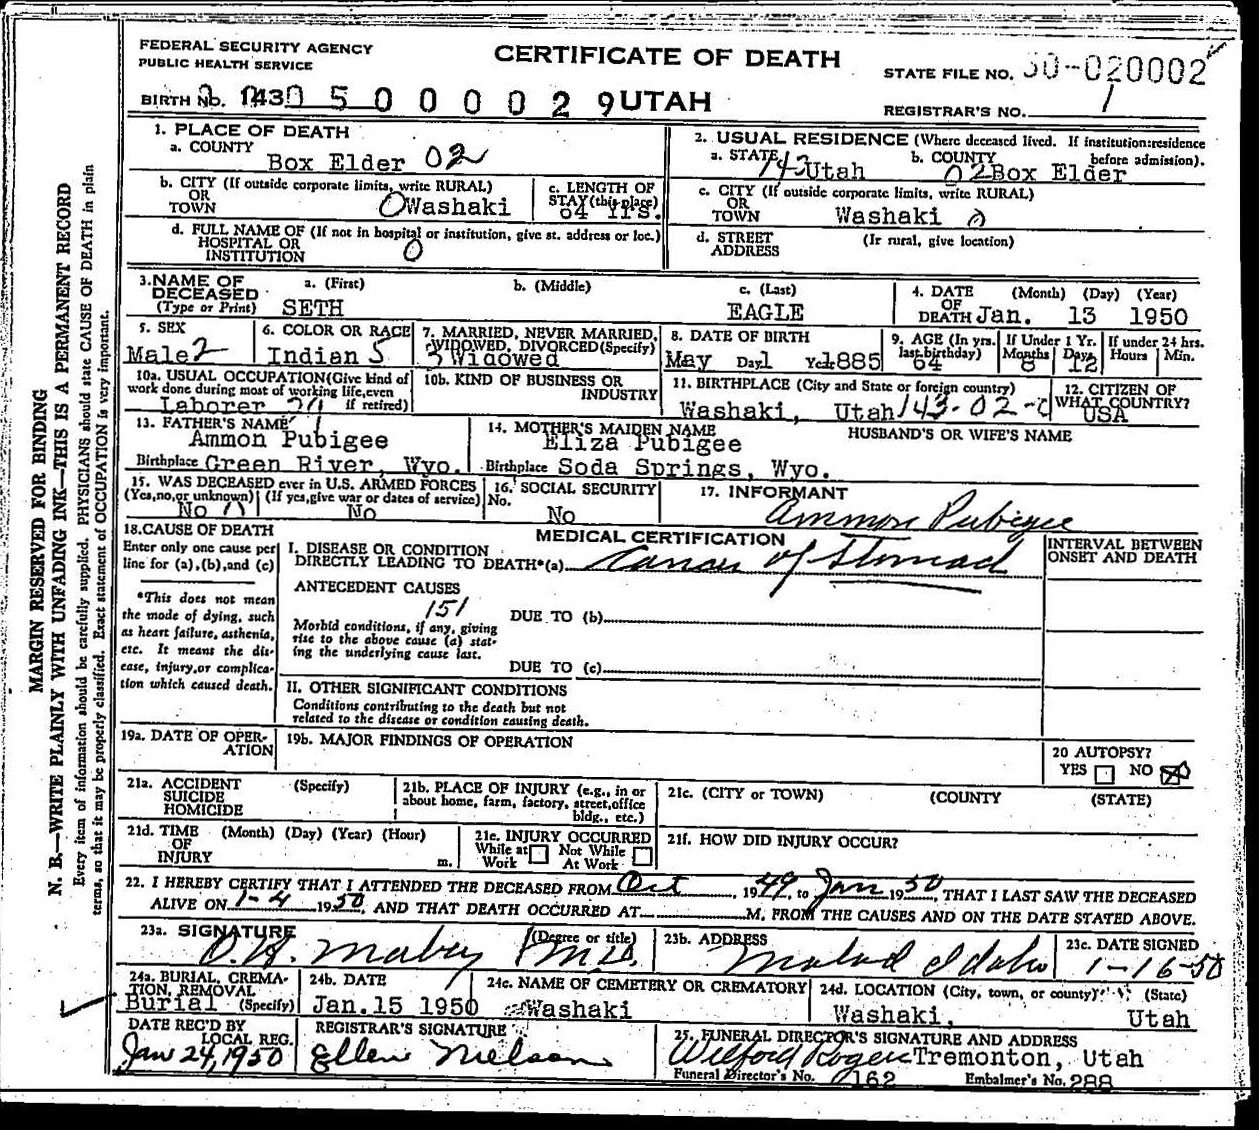 FEDERAL SECURITY AGENCY
PUBLIC HEALTH SERVICE
CERTIFICATE OF DEATH
STATE FILE NO. 50-020002
BIRTH NO. 143 0 5 0 0 0 0 2 9 UTAH
REGISTRAR'S NO. 1
1. PLACE OF DEATH
a. COUNTY
Box Elder 02
2. USUAL RESIDENCE (Where deceased lived. If institution:residence before admission).
a. STATE 143 Utah b. COUNTY 02 Box Elder
b. CITY (If outside corporate limits, write RURAL)
OR
TOWN 0 Washaki
c. LENGTH OF STAY (this place)
64 Yrs.
c. CITY (If outside corporate limits, write RURAL)
OR
TOWN Washaki 0
d. FULL NAME OF (If not in hospital or institution, give st. address or loc.)
HOSPITAL OR
INSTITUTION 0
d. STREET ADDRESS (If rural, give location)
3. NAME OF DECEASED (Type or Print)
a. (First) SETH
b. (Middle)
c. (Last) EAGLE
4. DATE OF DEATH (Month) (Day) (Year)
Jan. 13 1950
5. SEX
Male 2
6. COLOR OR RACE
Indian 5
7. MARRIED, NEVER MARRIED, WIDOWED, DIVORCED (Specify)
3 Widowed
8. DATE OF BIRTH
May Day 1 Yr. 1885
9. AGE (In yrs. last birthday) 64
If Under 1 Yr. Months 8 Days 12
If under 24 hrs. Hours Min.
10a. USUAL OCCUPATION (Give kind of work done during most of working life, even if retired)
Laborer
10b. KIND OF BUSINESS OR INDUSTRY
11. BIRTHPLACE (City and State or foreign country)
Washaki, Utah 143-02-0
12. CITIZEN OF WHAT COUNTRY?
USA
13. FATHER'S NAME
Ammon Pubigee
Birthplace Green River, Wyo.
14. MOTHER'S MAIDEN NAME
Eliza Pubigee
Birthplace Soda Springs, Wyo.
HUSBAND'S OR WIFE'S NAME
15. WAS DECEASED ever in U.S. ARMED FORCES
(Yes, no, or unknown) (If yes, give war or dates of service)
No 0 No
16. SOCIAL SECURITY No.
No
17. INFORMANT
Ammon Pubigee
18. CAUSE OF DEATH
Enter only one cause per line for (a), (b), and (c)
*This does not mean the mode of dying, such as heart failure, asthenia, etc. It means the disease, injury, or complication which caused death.
MEDICAL CERTIFICATION
I. DISEASE OR CONDITION
DIRECTLY LEADING TO DEATH*(a) Cancer of Stomach
INTERVAL BETWEEN ONSET AND DEATH
ANTECEDENT CAUSES
151
Morbid conditions, if any, giving rise to the above cause (a) stating the underlying cause last.
DUE TO (b)
DUE TO (c)
II. OTHER SIGNIFICANT CONDITIONS
Conditions contributing to the death but not related to the disease or condition causing death.
19a. DATE OF OPERATION
19b. MAJOR FINDINGS OF OPERATION
20 AUTOPSY?
YES NO
21a. ACCIDENT SUICIDE HOMICIDE (Specify)
21b. PLACE OF INJURY (e.g., in or about home, farm, factory, street, office bldg., etc.)
21c. (CITY or TOWN) (COUNTY) (STATE)
21d. TIME OF INJURY (Month) (Day) (Year) (Hour) m.
21e. INJURY OCCURRED
While at Work Not While At Work
21f. HOW DID INJURY OCCUR?
22. I HEREBY CERTIFY THAT I ATTENDED THE DECEASED FROM Oct, 1949, to Jan 1950, THAT I LAST SAW THE DECEASED
ALIVE ON 1-4 1950, AND THAT DEATH OCCURRED AT M. FROM THE CAUSES AND ON THE DATE STATED ABOVE.
23a. SIGNATURE (Degree or title)
O.H. Mabey M.D.
23b. ADDRESS
Malad Idaho
23c. DATE SIGNED
1-16-50
24a. BURIAL, CREMATION, REMOVAL (Specify)
Burial
24b. DATE
Jan. 15 1950
24c. NAME OF CEMETERY OR CREMATORY
Washaki
24d. LOCATION (City, town, or county) (State)
Washaki, Utah
DATE REC'D BY LOCAL REG.
Jan 24, 1950
REGISTRAR'S SIGNATURE
Ellen Nielson
25. FUNERAL DIRECTOR'S SIGNATURE AND ADDRESS
Wilford Rogers Tremonton, Utah
Funeral Director's No. 162 Embalmer's No. 288
MARGIN RESERVED FOR BINDING
N. B.—WRITE PLAINLY WITH UNFADING INK—THIS IS A PERMANENT RECORD
Every item of information should be carefully supplied. PHYSICIANS should state CAUSE OF DEATH in plain
terms, so that it may be properly classified. Exact statement of OCCUPATION is very important.